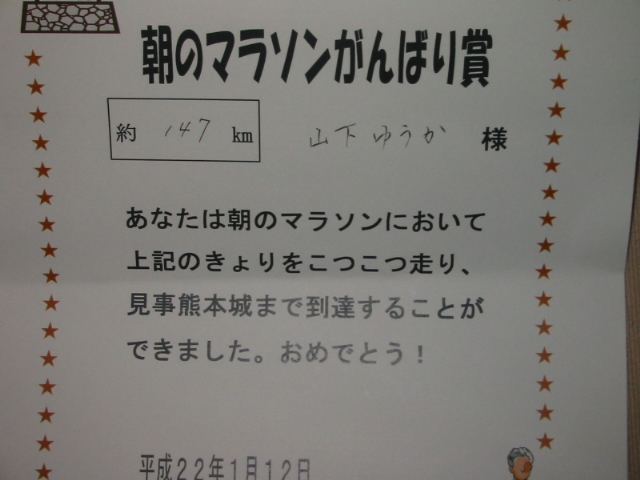 朝のマラソンがんばり賞
約 147 km 山下ゆうか 様
あなたは朝のマラソンにおいて
上記のきょりをこつこつ走り、
見事熊本城まで到達することが
できました。おめでとう！
平成22年1月12日